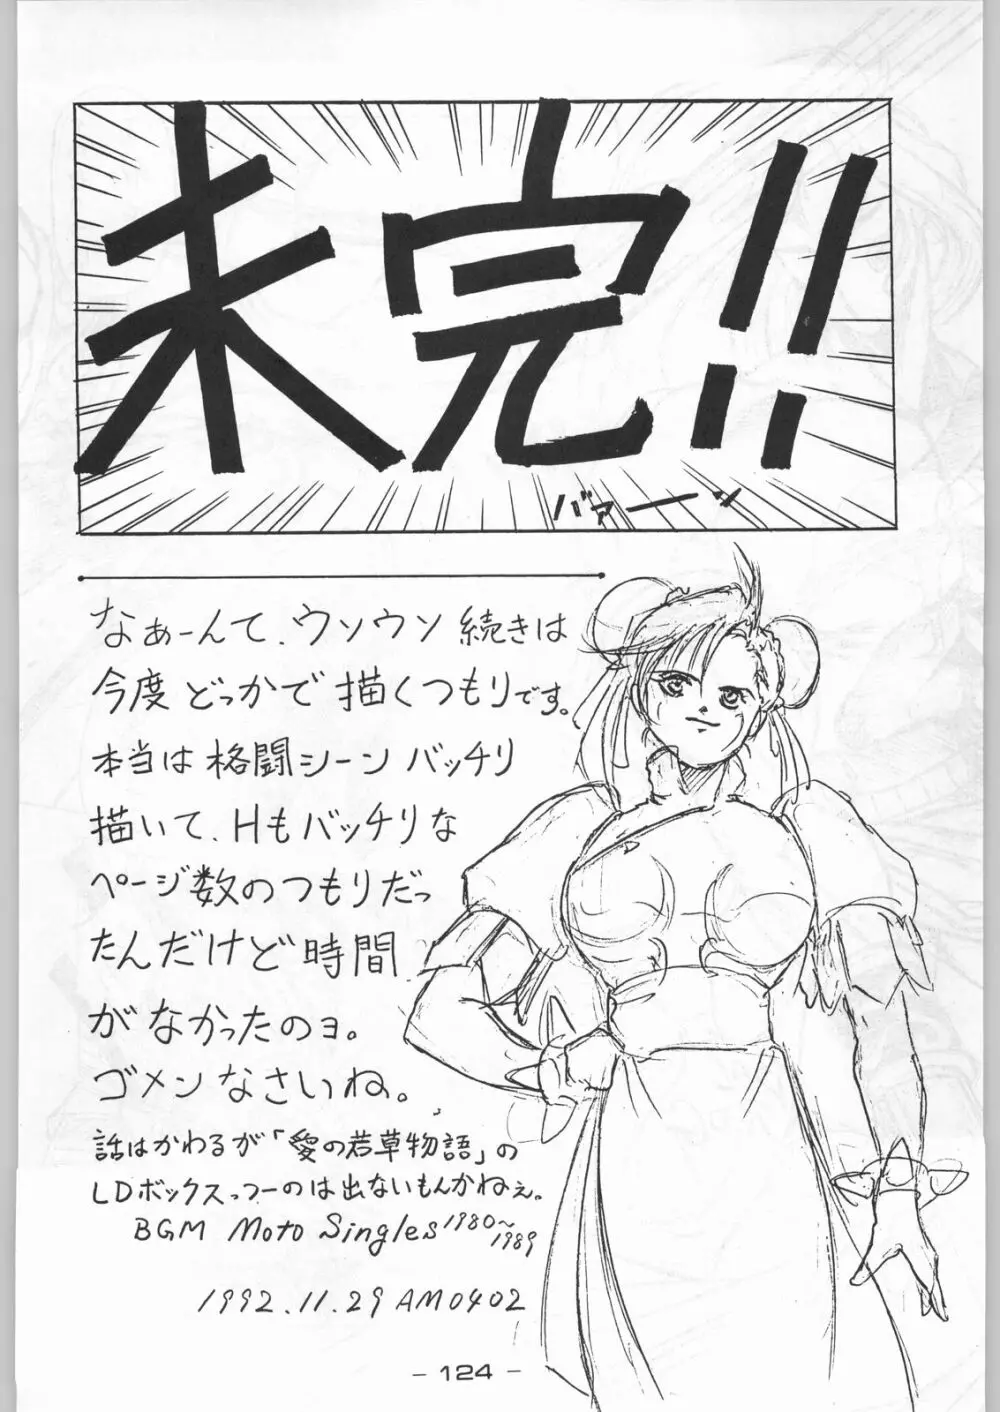 未完!!
バァーーン
なぁーんて、ウソウソ続きは
今度どっかで描くつもりです。
本当は格闘シーンバッチリ
描いて、Hもバッチリな
ページ数のつもりだっ
たんだけど時間
がなかったのヨ。
ゴメンなさいね。
話はかわるが「愛の若草物語」の
LDボックスっつーのは出ないもんかねぇ。
BGM Moto Singles 1980〜1989
1992.11.29 AM0402
- 124 -